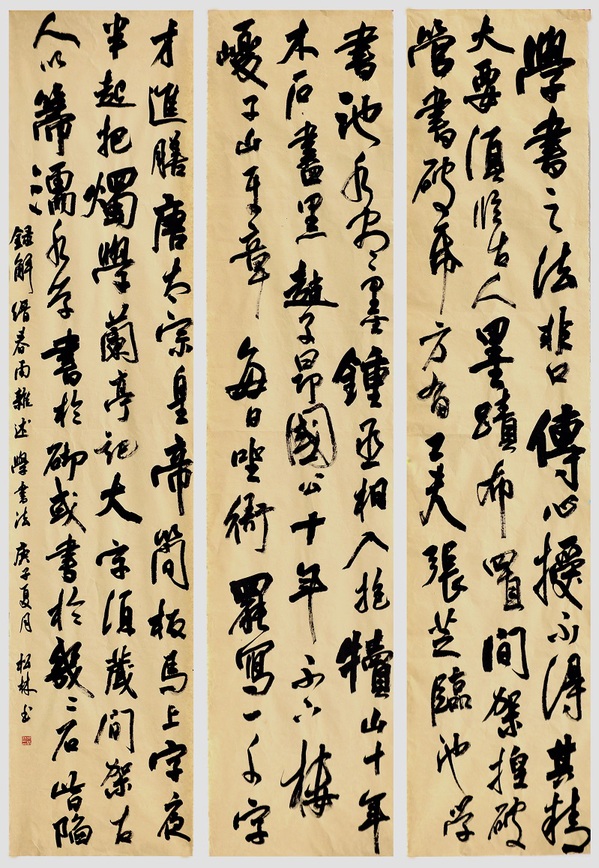 學書之法非口傳心授不得其精
大要須臨古人墨蹟布置間架担破
管書破紙方有工夫張芝臨池學
書池水盡墨鍾丞相入抱犢山十年
木石盡黑趙子昂國公十年不下樓
巙子山平章每日坐衙罷寫一千字
才進膳唐太宗皇帝簡板馬上字夜
半起把燭學蘭亭記大字須藏間架古
人以箒濡水學書於砌或書於石皆陷
錄解縉春雨雜述學書法 庚子夏月 松林書